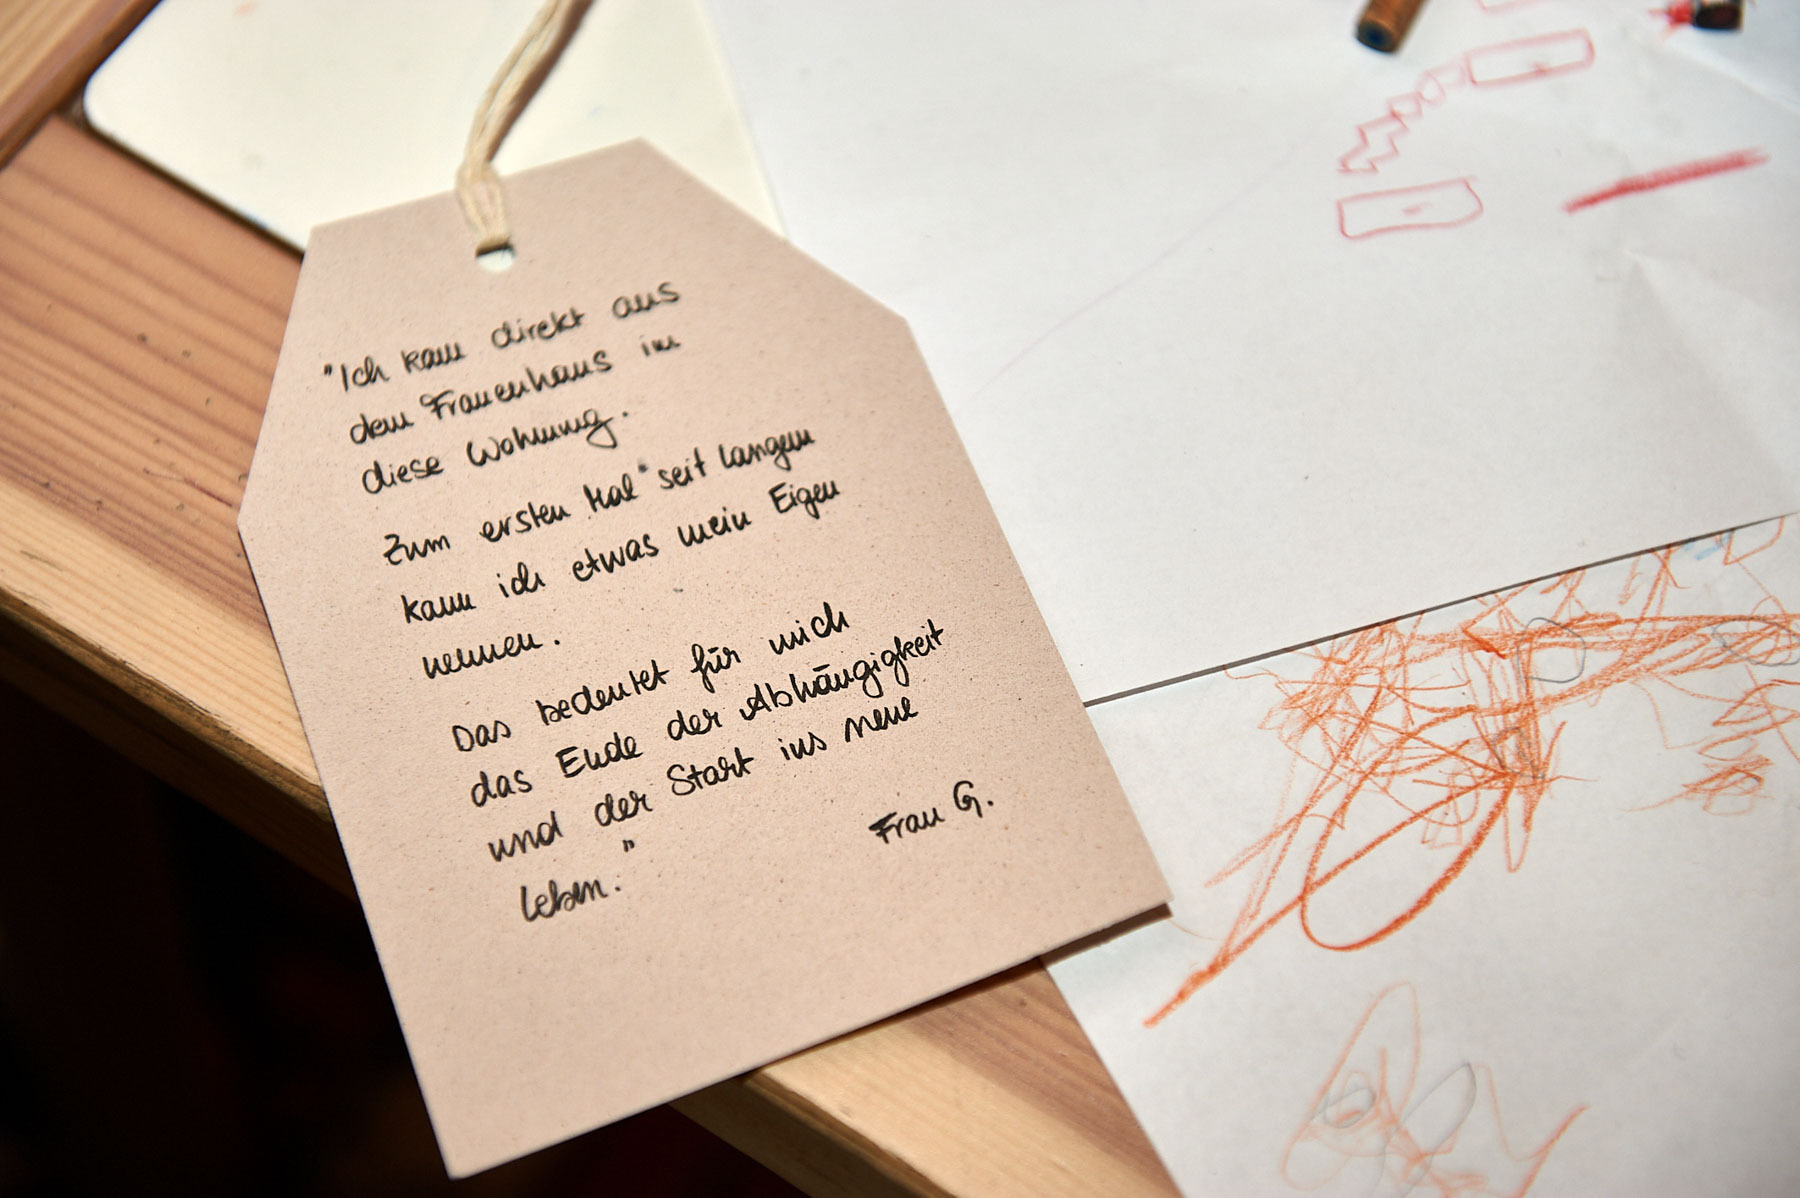 "Ich kam direkt aus
dem Frauenhaus in
diese Wohnung.
Zum ersten Mal" seit langem
kann ich etwas mein Eigen
nennen.
Das bedeutet für mich
das Ende der Abhängigkeit
und der Start ins neue
Leben."
Frau G.